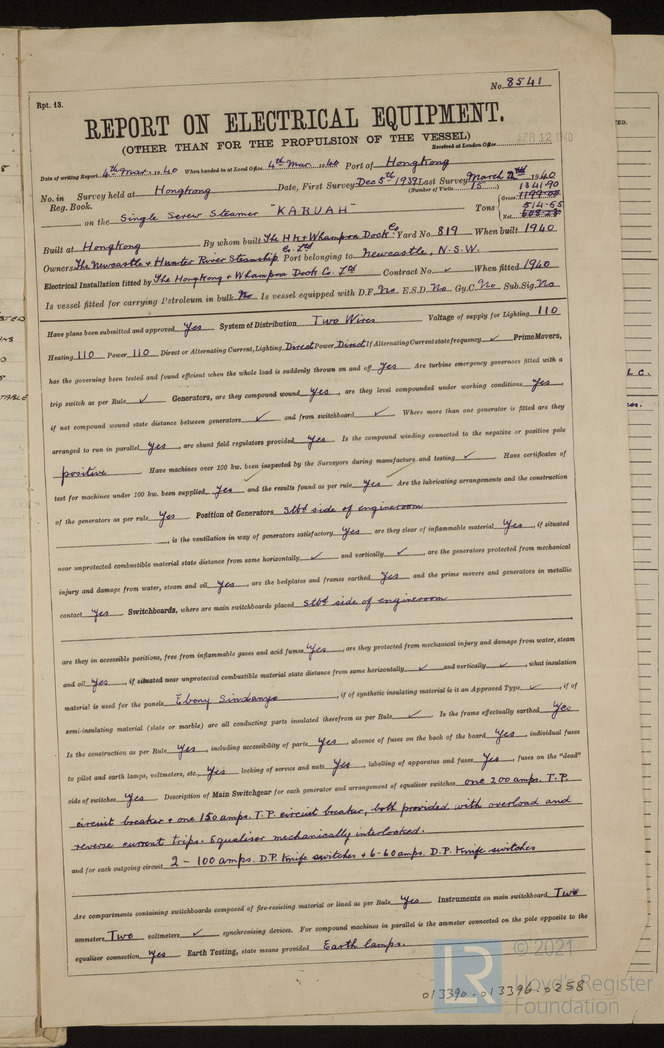 No. 8541
Rpt. 13.
REPORT ON ELECTRICAL EQUIPMENT.
(OTHER THAN FOR THE PROPULSION OF THE VESSEL)
Received at London Office APR 12 1940
Date of writing Report 4th Mar. 1940 When handed in at Local Office 4th Mar. 1940 Port of Hongkong
No. in Survey held at Hongkong Date, First Survey Dec 5th 1939 Last Survey March 1940
Reg. Book. (Number of Visits 15) 1341.90
on the Single Screw Steamer "KARUAH" Tons Gross 1199.07
514.65
Net 608.28
Built at Hongkong By whom built The HK & Whampoa Dock Co. Ltd Yard No. 819 When built 1940
Owners The Newcastle & Hunter River Steamship Co. Ltd Port belonging to Newcastle, N.S.W.
Electrical Installation fitted by The Hongkong & Whampoa Dock Co. Ltd Contract No. ✓ When fitted 1940
Is vessel fitted for carrying Petroleum in bulk No Is vessel equipped with D.F. No E.S.D. No Gy.C. No Sub.Sig. No
Have plans been submitted and approved Yes System of Distribution Two Wires Voltage of supply for Lighting 110
Heating 110 Power 110 Direct or Alternating Current, Lighting Direct Power Direct If Alternating Current state frequency ✓ Prime Movers,
has the governing been tested and found efficient when the whole load is suddenly thrown on and off Yes Are turbine emergency governors fitted with a
trip switch as per Rule ✓ Generators, are they compound wound Yes, are they level compounded under working conditions Yes,
if not compound wound state distance between generators ✓ and from switchboard ✓ Where more than one generator is fitted are they
arranged to run in parallel Yes, are shunt field regulators provided Yes Is the compound winding connected to the negative or positive pole
positive Have machines over 100 kw. been inspected by the Surveyors during manufacture and testing ✓ Have certificates of
test for machines under 100 kw. been supplied Yes and the results found as per rule Yes Are the lubricating arrangements and the construction
of the generators as per rule Yes Position of Generators Stbd side of engineroom
, is the ventilation in way of generators satisfactory Yes are they clear of inflammable material Yes, if situated
near unprotected combustible material state distance from same horizontally ✓ and vertically ✓, are the generators protected from mechanical
injury and damage from water, steam and oil Yes, are the bedplates and frames earthed Yes and the prime movers and generators in metallic
contact Yes Switchboards, where are main switchboards placed Stbd side of engineroom
are they in accessible positions, free from inflammable gases and acid fumes Yes, are they protected from mechanical injury and damage from water, steam
and oil Yes, if situated near unprotected combustible material state distance from same horizontally ✓ and vertically ✓, what insulation
material is used for the panels Ebony Sindanyo, if of synthetic insulating material is it an Approved Type ✓, if of
semi-insulating material (slate or marble) are all conducting parts insulated therefrom as per Rule ✓ Is the frame effectually earthed Yes
Is the construction as per Rule Yes, including accessibility of parts Yes, absence of fuses on the back of the board Yes, individual fuses
to pilot and earth lamps, voltmeters, etc., Yes locking of screws and nuts Yes, labelling of apparatus and fuses Yes, fuses on the "dead"
side of switches Yes Description of Main Switchgear for each generator and arrangement of equaliser switches one 200 amps. T.P.
circuit breaker & one 150 amps. T.P. circuit breaker, both provided with overload and
reverse current trips. Equaliser mechanically interlocked.
and for each outgoing circuit 2 - 100 amps. D.P. Knife switches & 6-60 amps. D.P. Knife switches
Are compartments containing switchboards composed of fire-resisting material or lined as per Rule Yes Instruments on main switchboard Two
ammeters Two voltmeters ✓ synchronising devices. For compound machines in parallel is the ammeter connected on the pole opposite to the
equaliser connection Yes Earth Testing, state means provided Earth lamps.
© 2021
LR Lloyd's Register
Foundation
013390-013396-0258